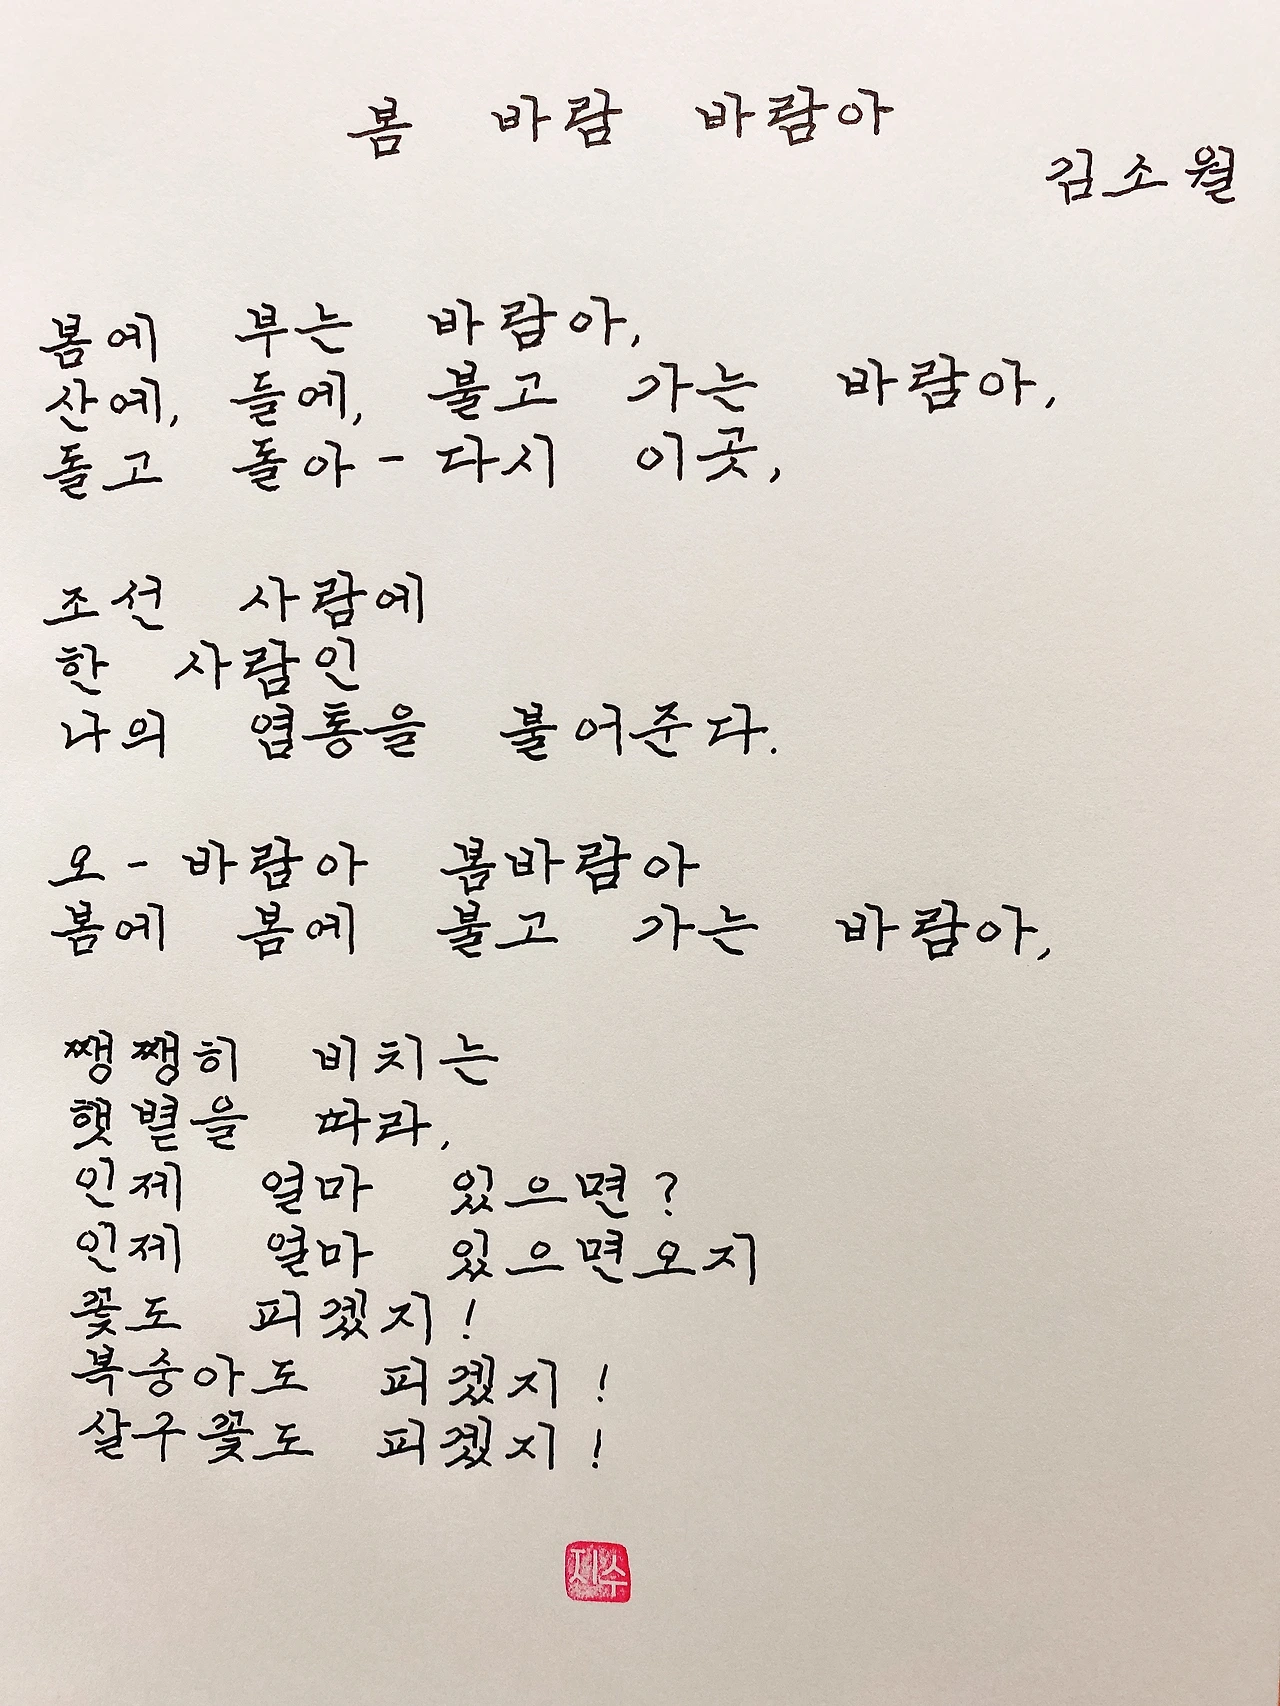 봄 바람 바람아
김소월
봄에 부는 바람아,
산에, 들에, 불고 가는 바람아,
돌고 돌아 - 다시 이곳,
조선 사람에
한 사람인
나의 염통을 불어준다.
오 - 바람아 봄바람아
봄에 봄에 불고 가는 바람아,
쨍쨍히 비치는
햇볕을 따라,
인제 얼마 있으면?
인제 얼마 있으면오지
꽃도 피겠지!
복숭아도 피겠지!
살구꽃도 피겠지!
지수